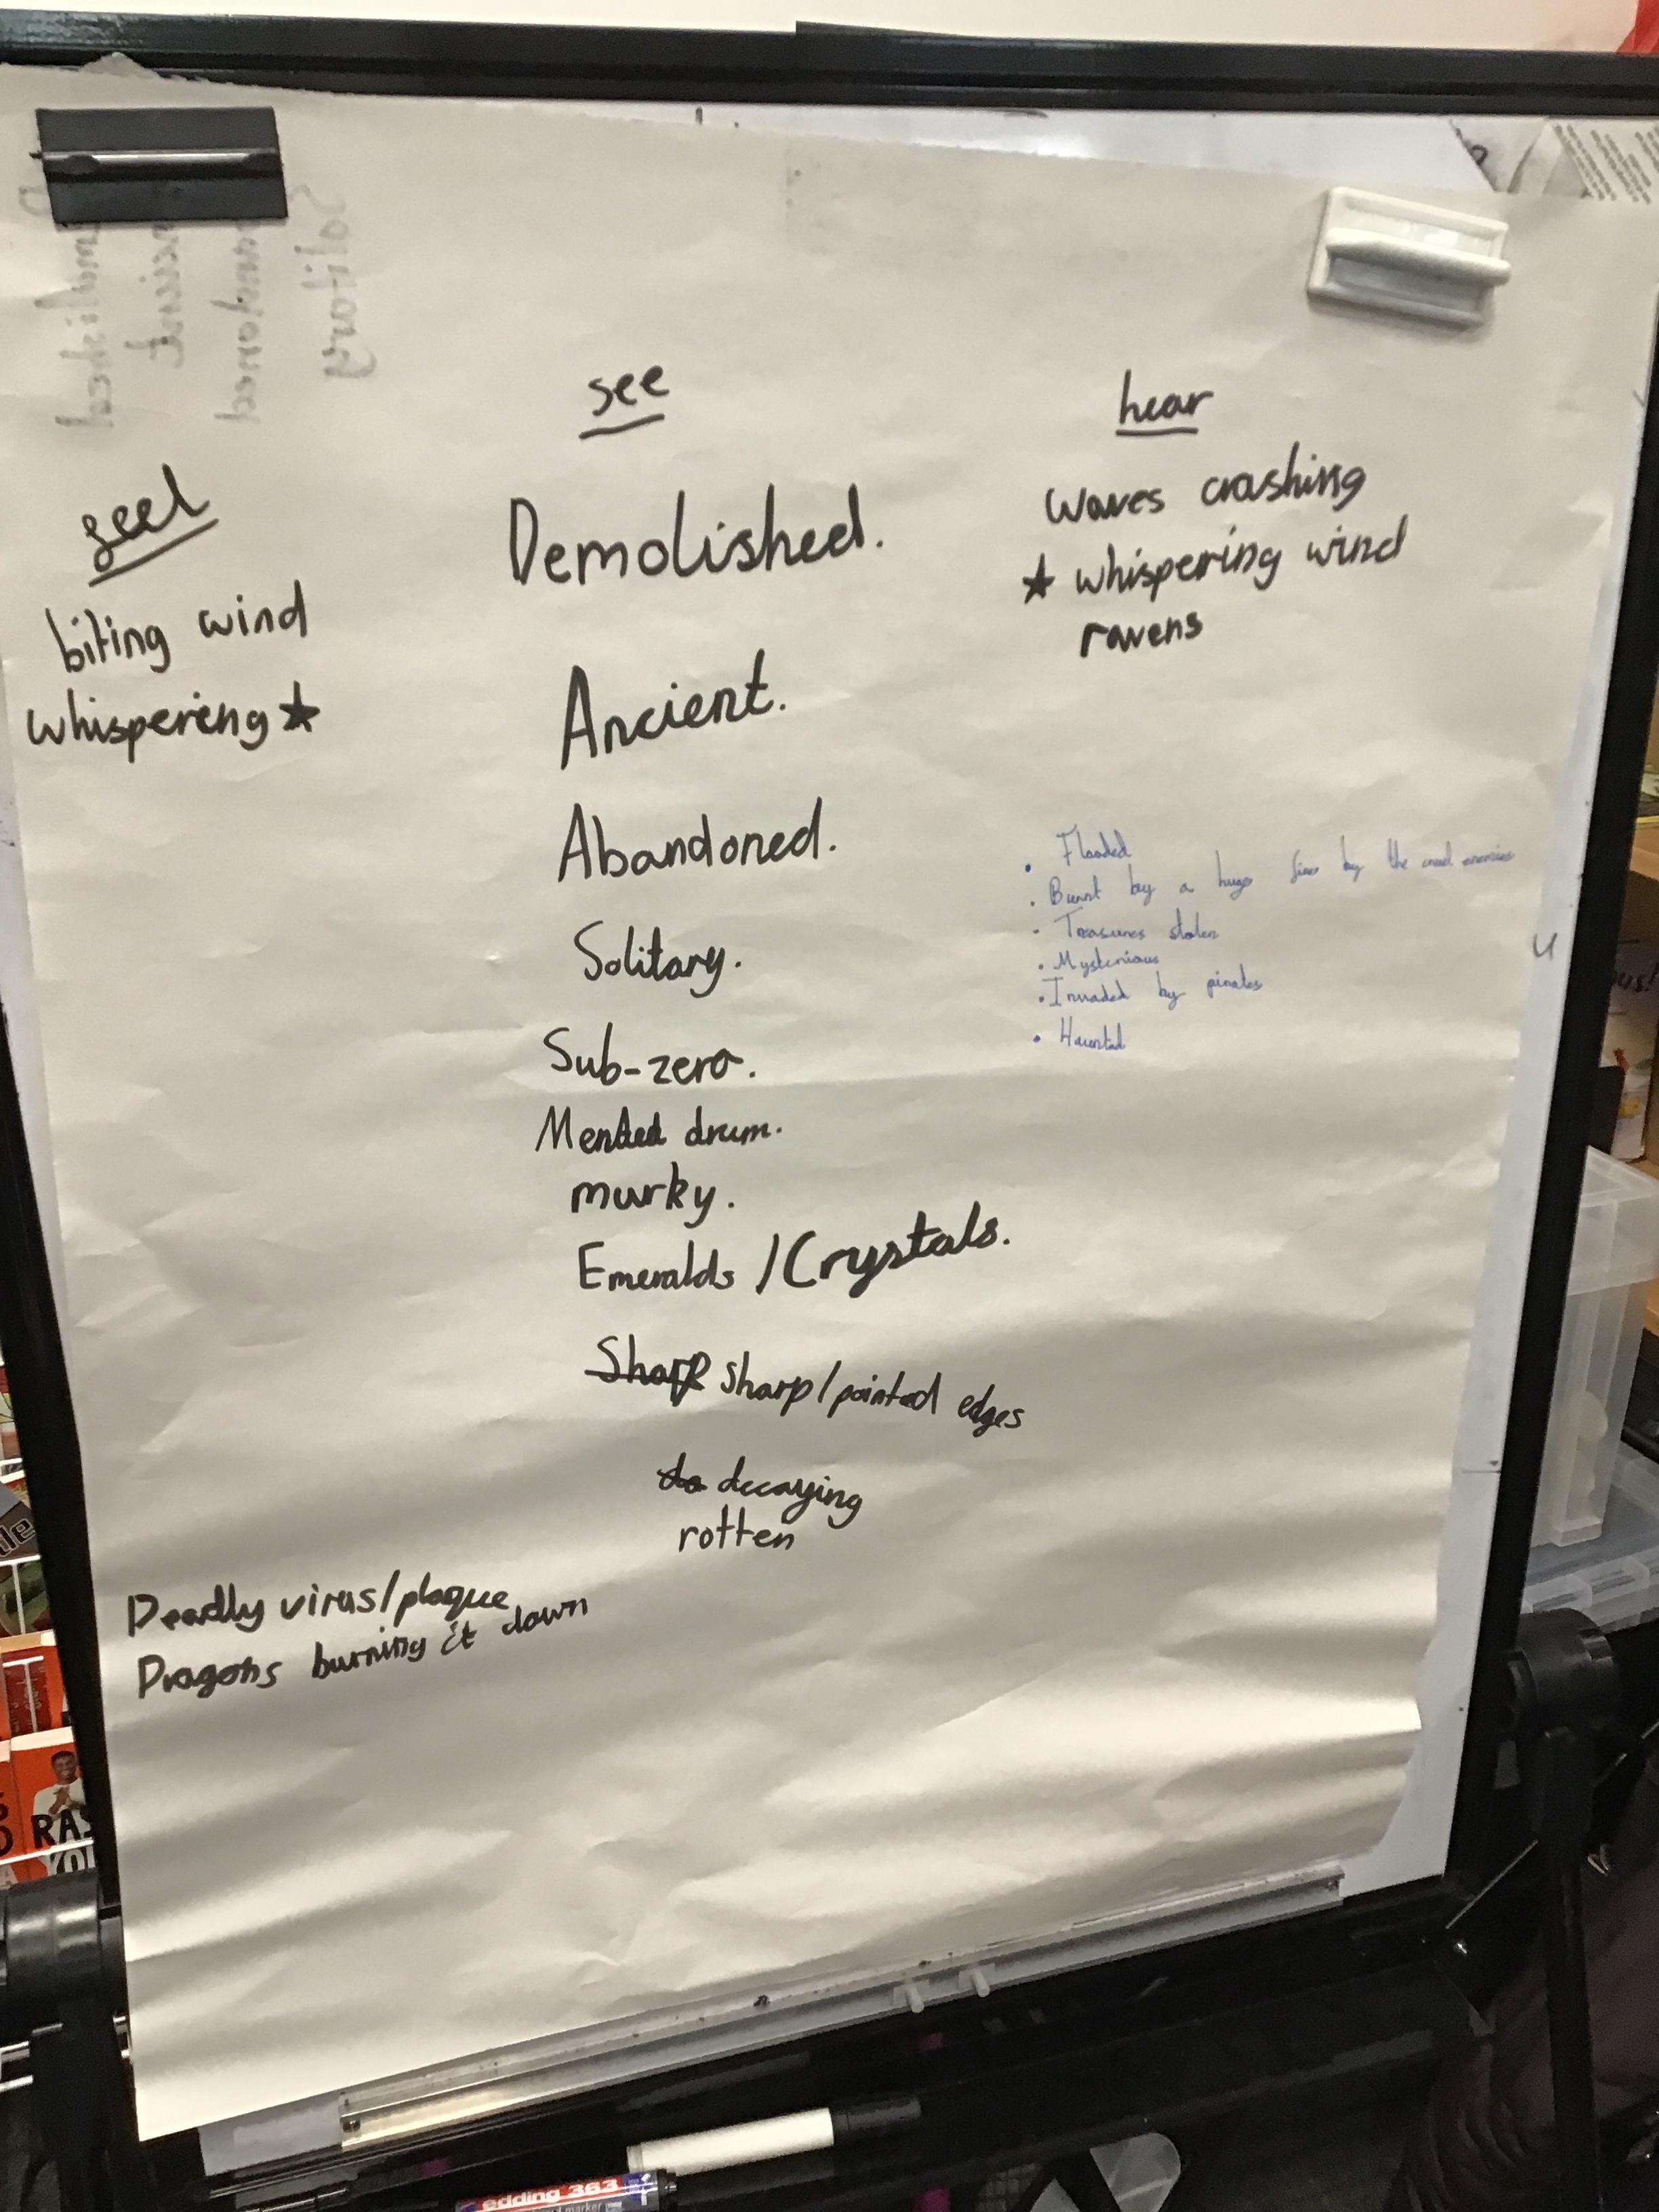 see
hear
feel
Demolished.
waves crashing
★ whispering wind
ravens
biting wind
whispering ★
Ancient.
Abandoned.
Solitary.
Sub-zero.
drum.
murky.
Emeralds / Crystals.
Sharp sharp/pointed edges
do decaying
rotten
• Flooded
• Burnt by a huge fire by the cruel enemies
• Treasures stolen
• Mysterious
• Invaded by pirates
• Haunted
Deadly virus/plague
Dragons burning it down
Solitary
edding 363